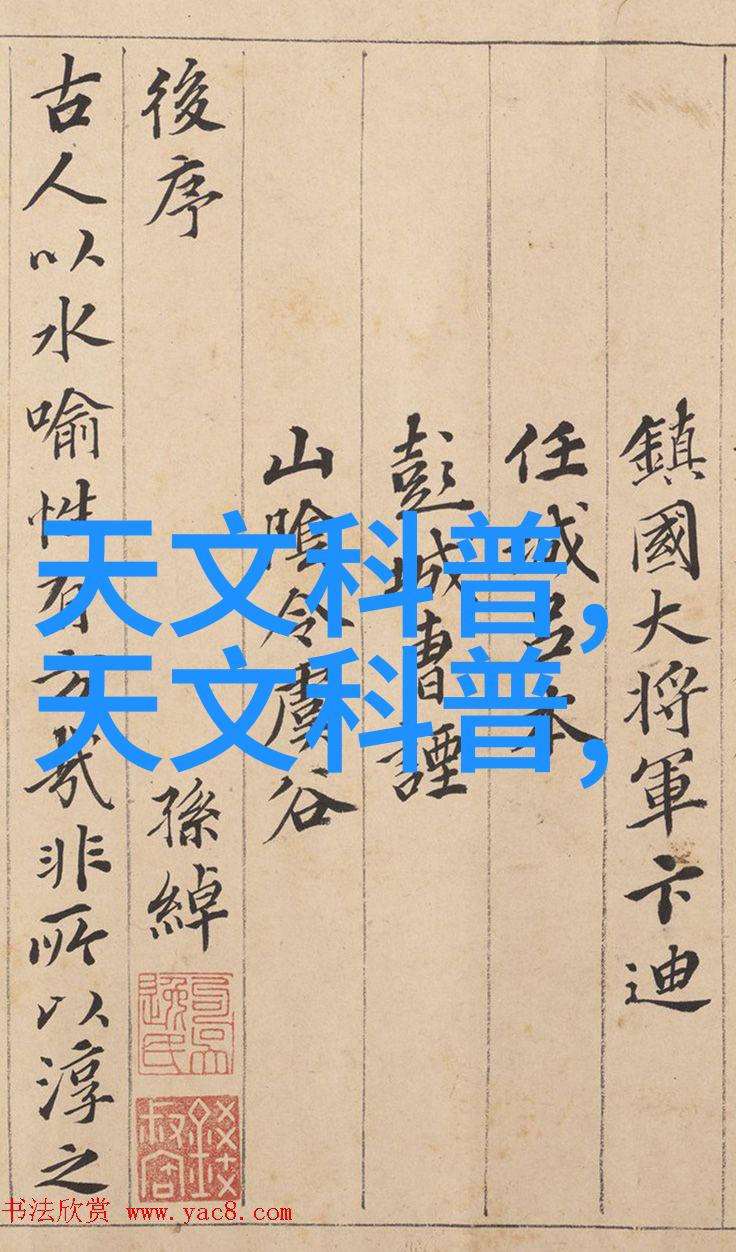 鎮國大將軍卞迪
任城呂本
彭城曹諲
山陰令虞谷
後序
孫綽
古人以水喻性有㫖哉非所以淳之
天文科普,
天文科普,
书法欣赏 www.yac8.com